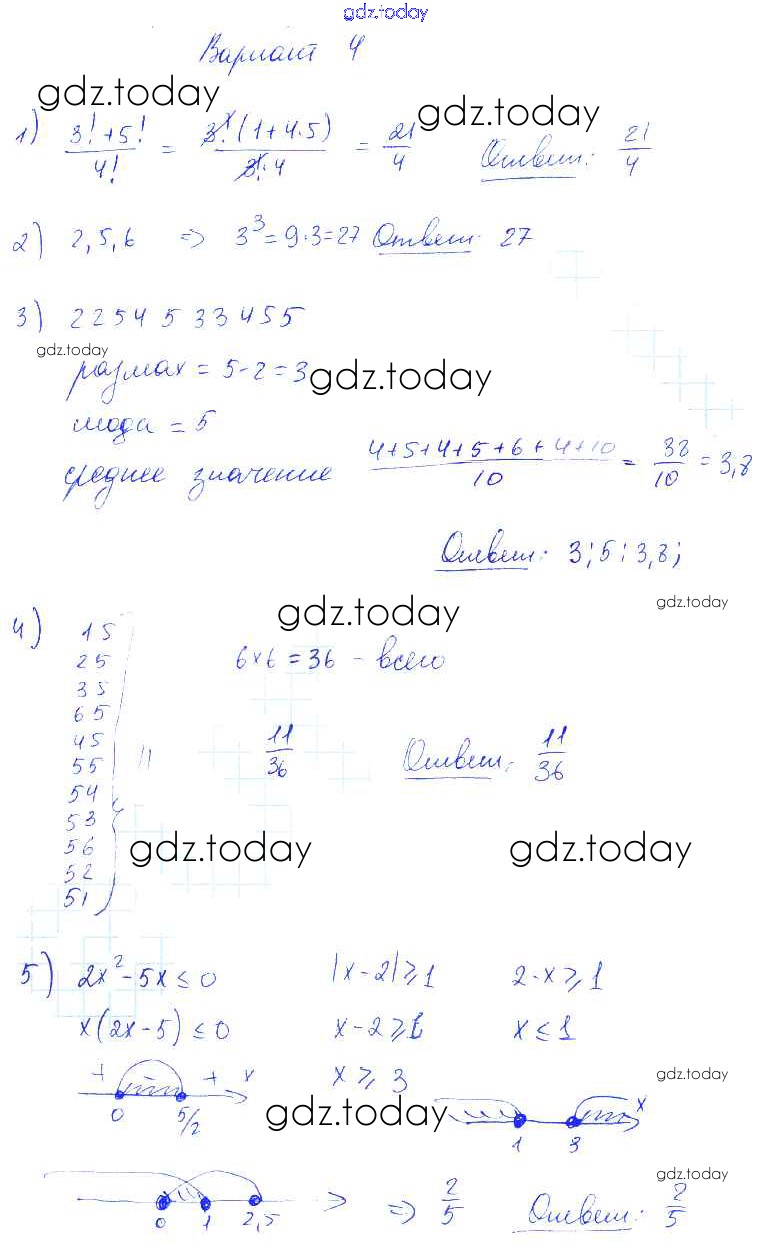 gdz.today
Вариант 4
gdz.today
1) (3!+5!)/4! = 3!(1+4·5)/(3!·4) = 21/4 Ответ: 21/4
gdz.today
2) 2,5,6 => 3³=9·3=27 Ответ: 27
3) 2 2 5 4 5 3 3 4 5 5
gdz.today
размах = 5-2=3
gdz.today
мода = 5
среднее значение (4+5+4+5+6+4+10)/10 = 38/10 = 3,8
Ответ: 3; 5; 3,8;
gdz.today
gdz.today
4) 15
25 6×6=36 - всего
35
65
45 11 11/36 Ответ: 11/36
55
54
53
56
gdz.today gdz.today
52
51
5) 2x²-5x≤0 |x-2|≥1 2-x≥1
x(2x-5)≤0 x-2≥1 x≤1
+ + x x≥3
gdz.today
0 5/2
gdz.today
x
1 3
gdz.today
0 1 2,5 => 2/5 Ответ: 2/5